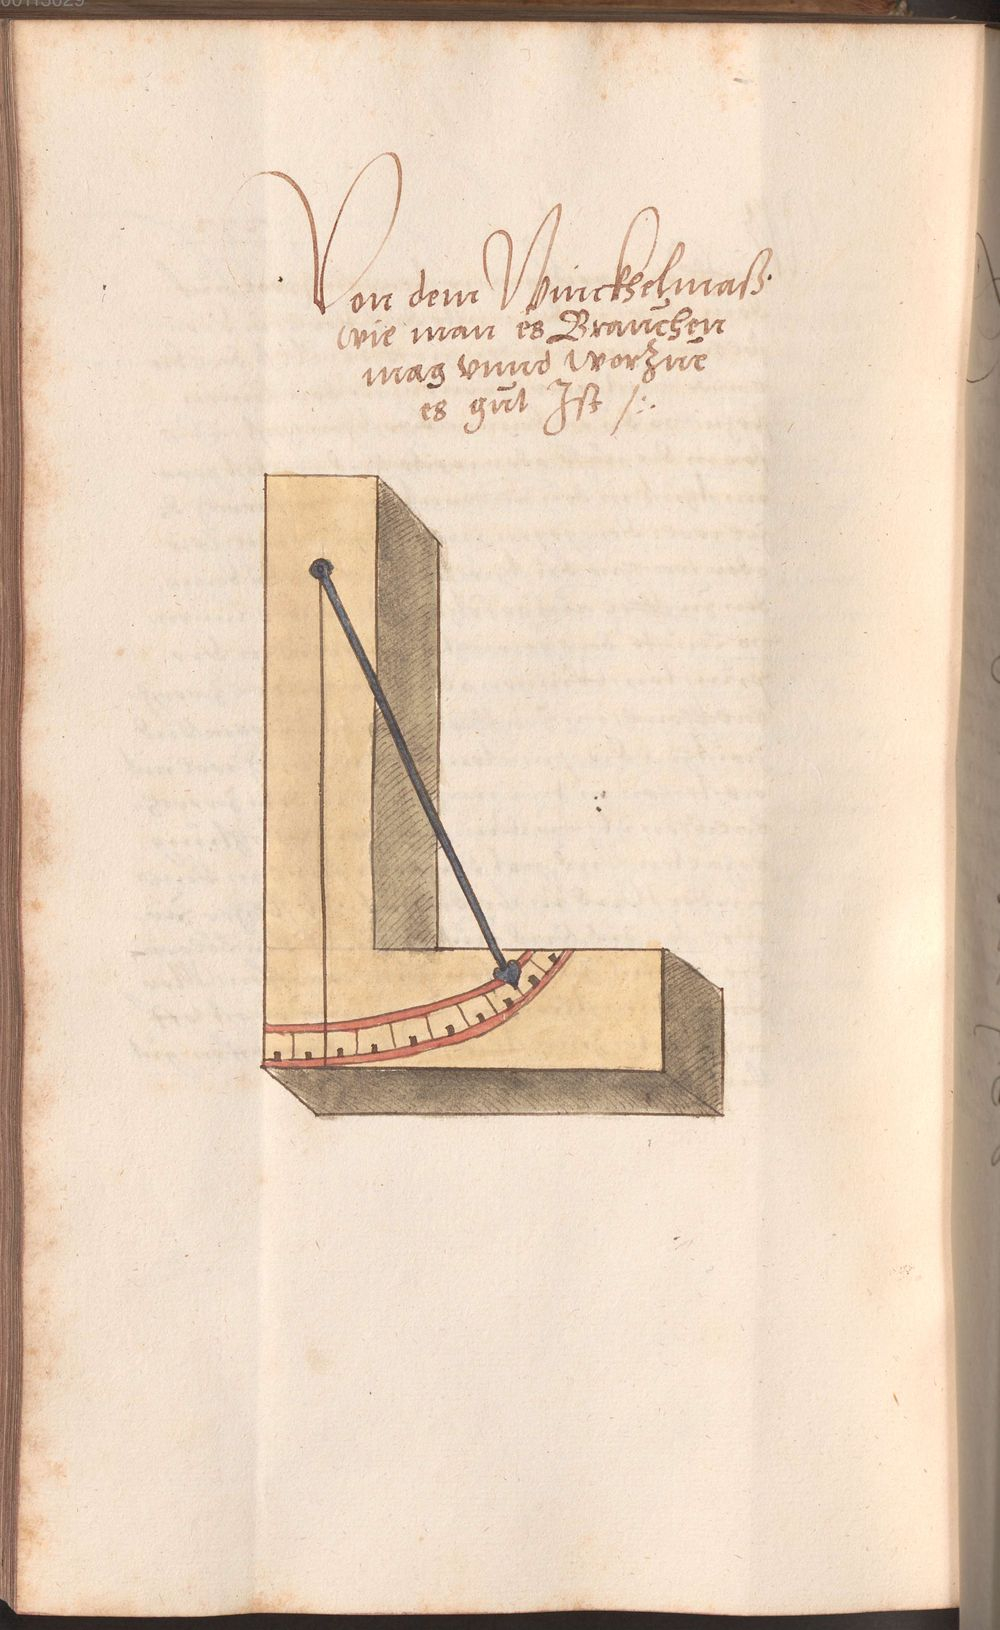 00113029
Von dem Winckhelmaß.
wie man es Brauchen
mag vnnd worzue
es guet Ist /:.